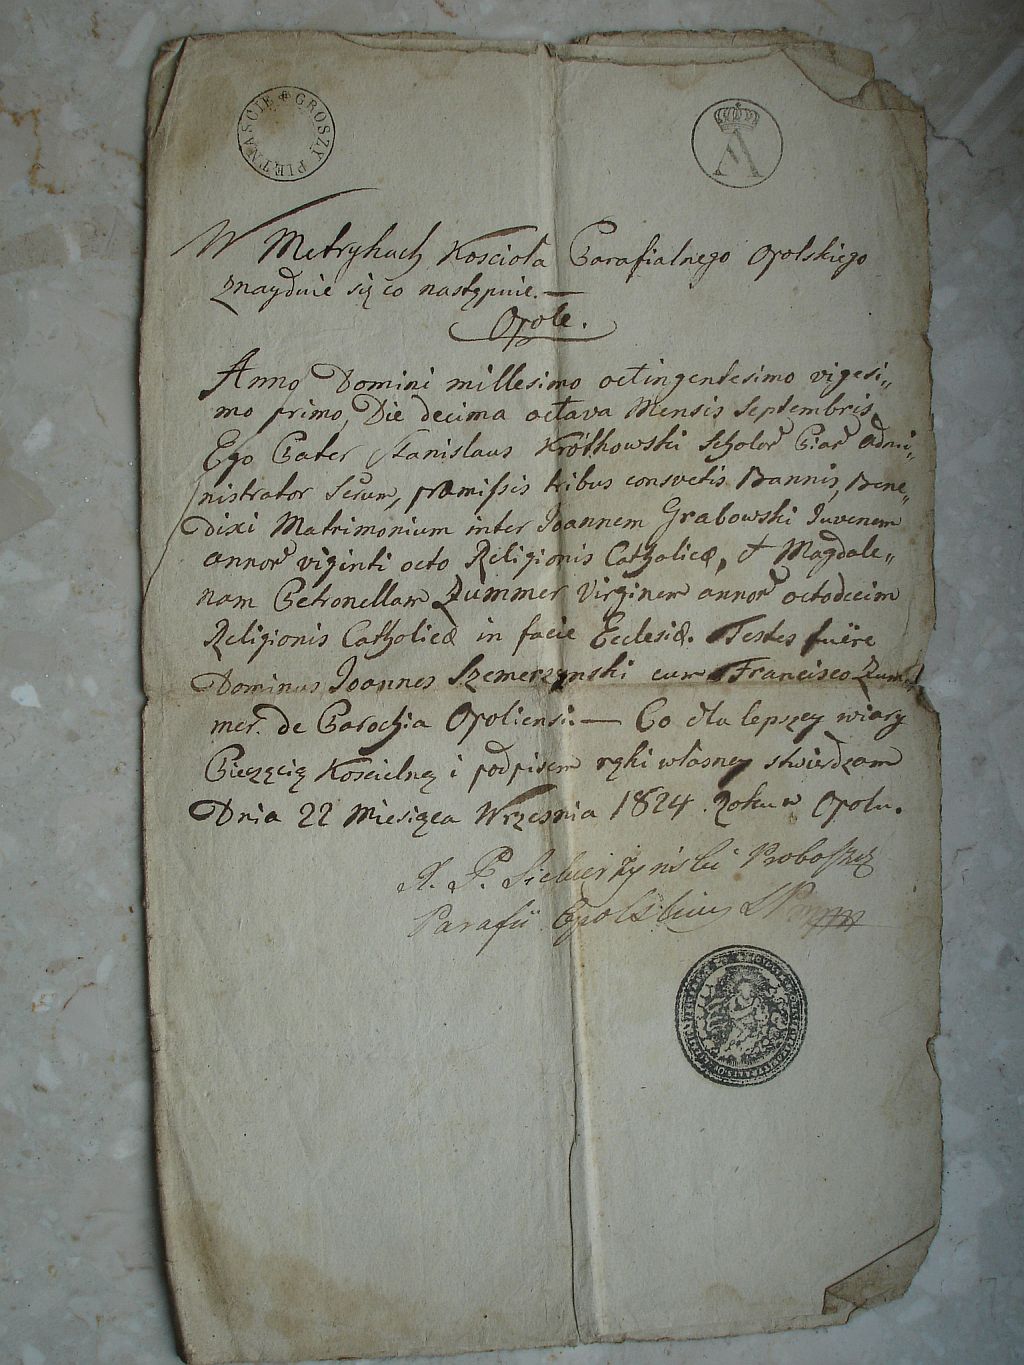 GROSZY PIETNAŚCIE
A
W Metrykach Kościoła Parafialnego Opolskiego
znayduie się co następuie. —
Opole.
Anno Domini millesimo octingentesimo vigesi„
mo primo, Die decima octava Mensis Septembris
Ego Pater Stanislaus Krótkowski Scholar Piar Admi„
nistrator, præmissis tribus consvetis Bannis, Bene„
dixi Matrimonium inter Joannem Grabowski Juvenem
annor viginti octo Religionis Catholicæ, et Magdale„
nam Petronellam Zummer Virginem annor octodecim
Religionis Catholicæ in facie Ecclesiæ. Testes fuëre
Dominus Joannes Szemerzynski cum Francisco Zum„
mer. de Parochia Opoliensi. — Co dla lepszey wiary
Pieczęcią Kościelną i podpisem ręki własney stwierdzam
Dnia 22 Miesiąca Września 1824 roku w Opolu.
X. P. Proboszcz
Parafii